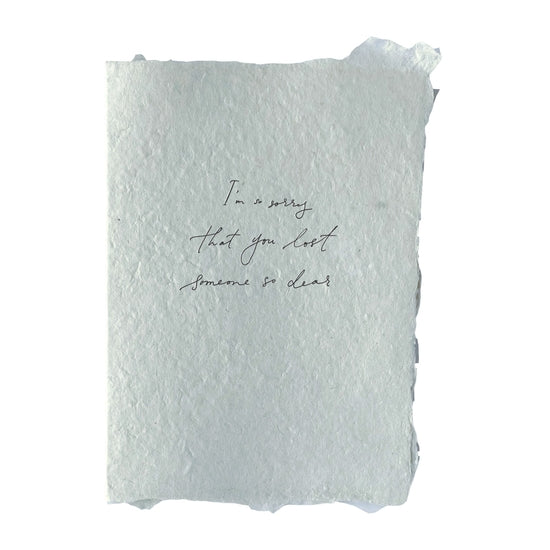 I'm so sorry
that you lost
someone so dear